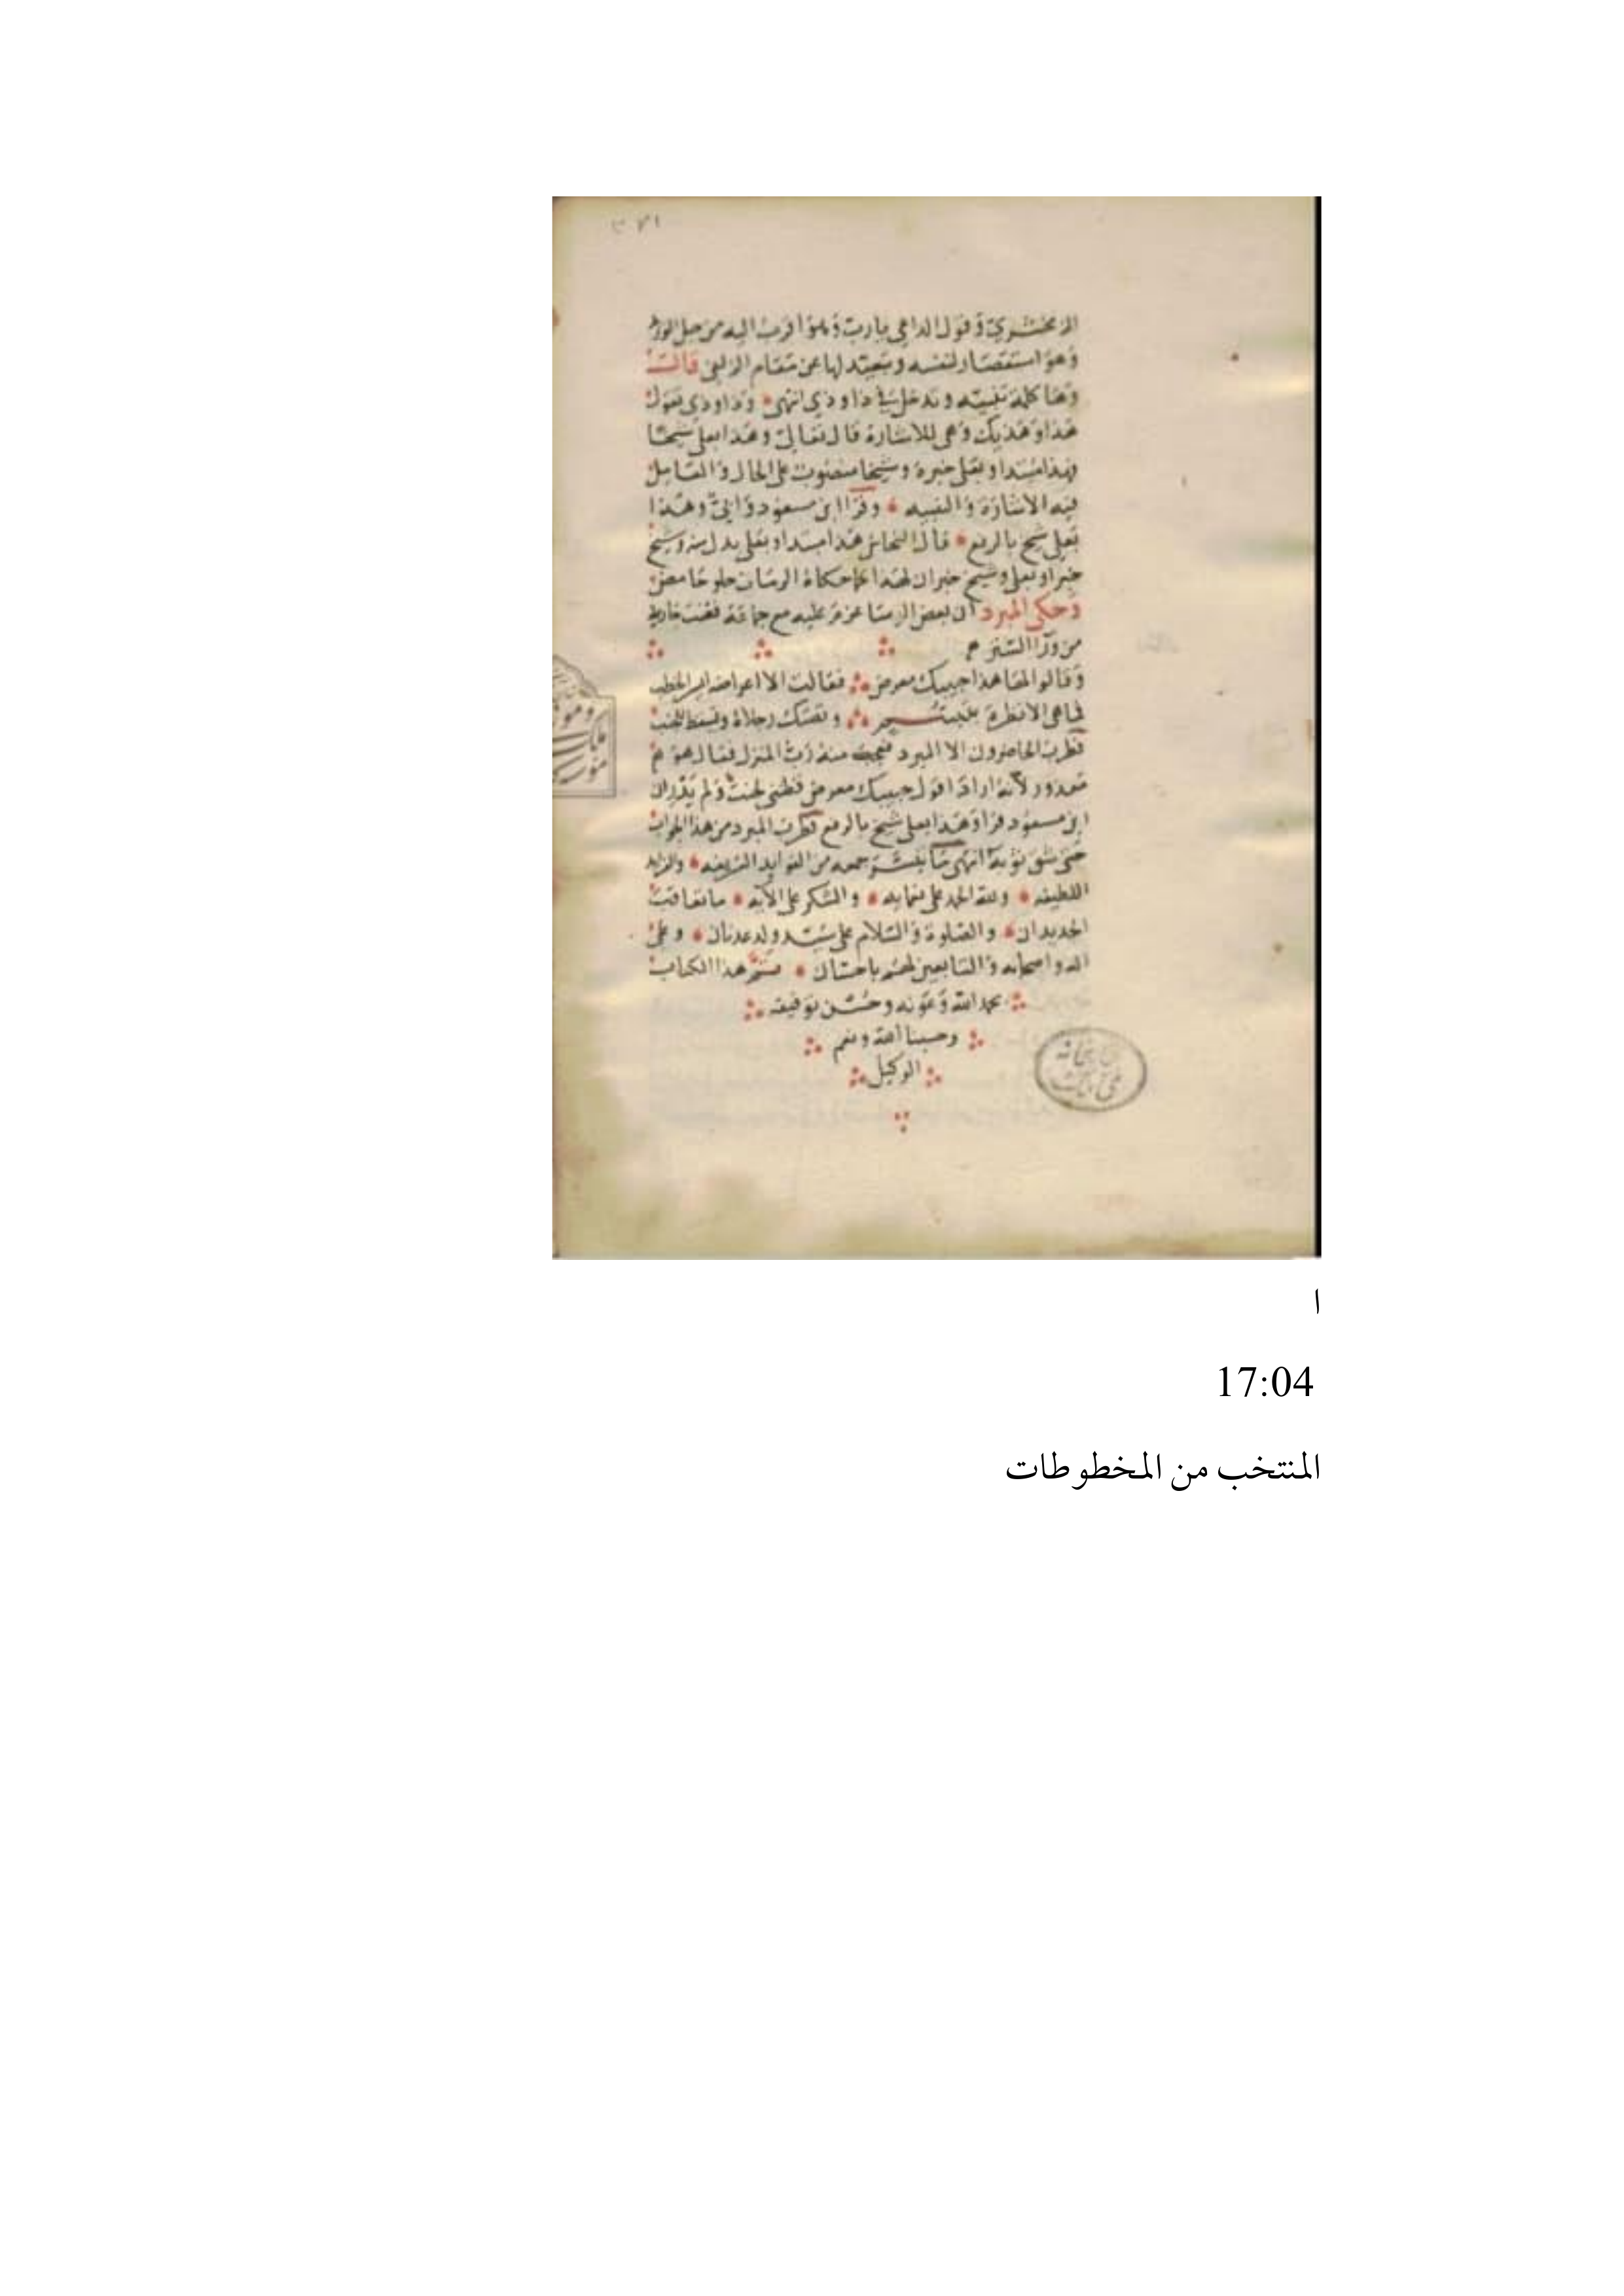 ٣٧١
الزمخشري وقول الداعي يارب وهو اقرب اليه من حبل الوريد
وهو استقصار لنفسه وتبعيد لها عن مقام الزلفى قالت
وها كلمة تنبيه وتدخل في ذا وذي انتهى وذا وذي تقول
هذا وهذيك وهي للاشارة قال تعالى وهذا بعلي شيخا
فهذا مبتدا وبعلي خبره وشيخا منصوب على الحال والعامل
فيه الاشارة والتنبيه وقرا ابن مسعود وابي وهذا
بعلي شيخ بالرفع قال النحاس هذا مبتدا وبعلي بدل منه وشيخ
خبر او بعلي وشيخ خبران لهذا كما حكاه الرمان حلو حامض
وحكى المبرد ان بعض الرسا عزم عليه مع جماعة فغنت جارية
من ورآ الستر
وقالوا لها هذا حبيبك معرض فقالت الا اعراضه ايسر الخطب
فما هي الا نظرة بتبسم وتصتك رجلاه ويسقط للجنب
فطرب الحاضرون الا المبرد فعجب منه رب المنزل فقال هو
معذور لانه اراد اقول حبيبك معرض فظنني لحنت ولم يدر ان
ابن مسعود قرا وهذا بعلي شيخ بالرفع فطرب المبرد من هذا الجواب
حتى شق ثوبه انتهى ما تيسر جمعه من الفوايد الشريفه
اللطيفه ولله الحمد على نعمايه والشكر على الآيه ما تعاقبت
الجديدان والصلوة والسلام على سيد ولد عدنان وعلى
اله واصحابه والتابعين لهم باحسان تم هذا الكتاب
بحمد الله وعونه وحسن توفيقه
وحسبنا الله ونعم
الوكيل
ا
17:04
المنتخب من المخطوطات